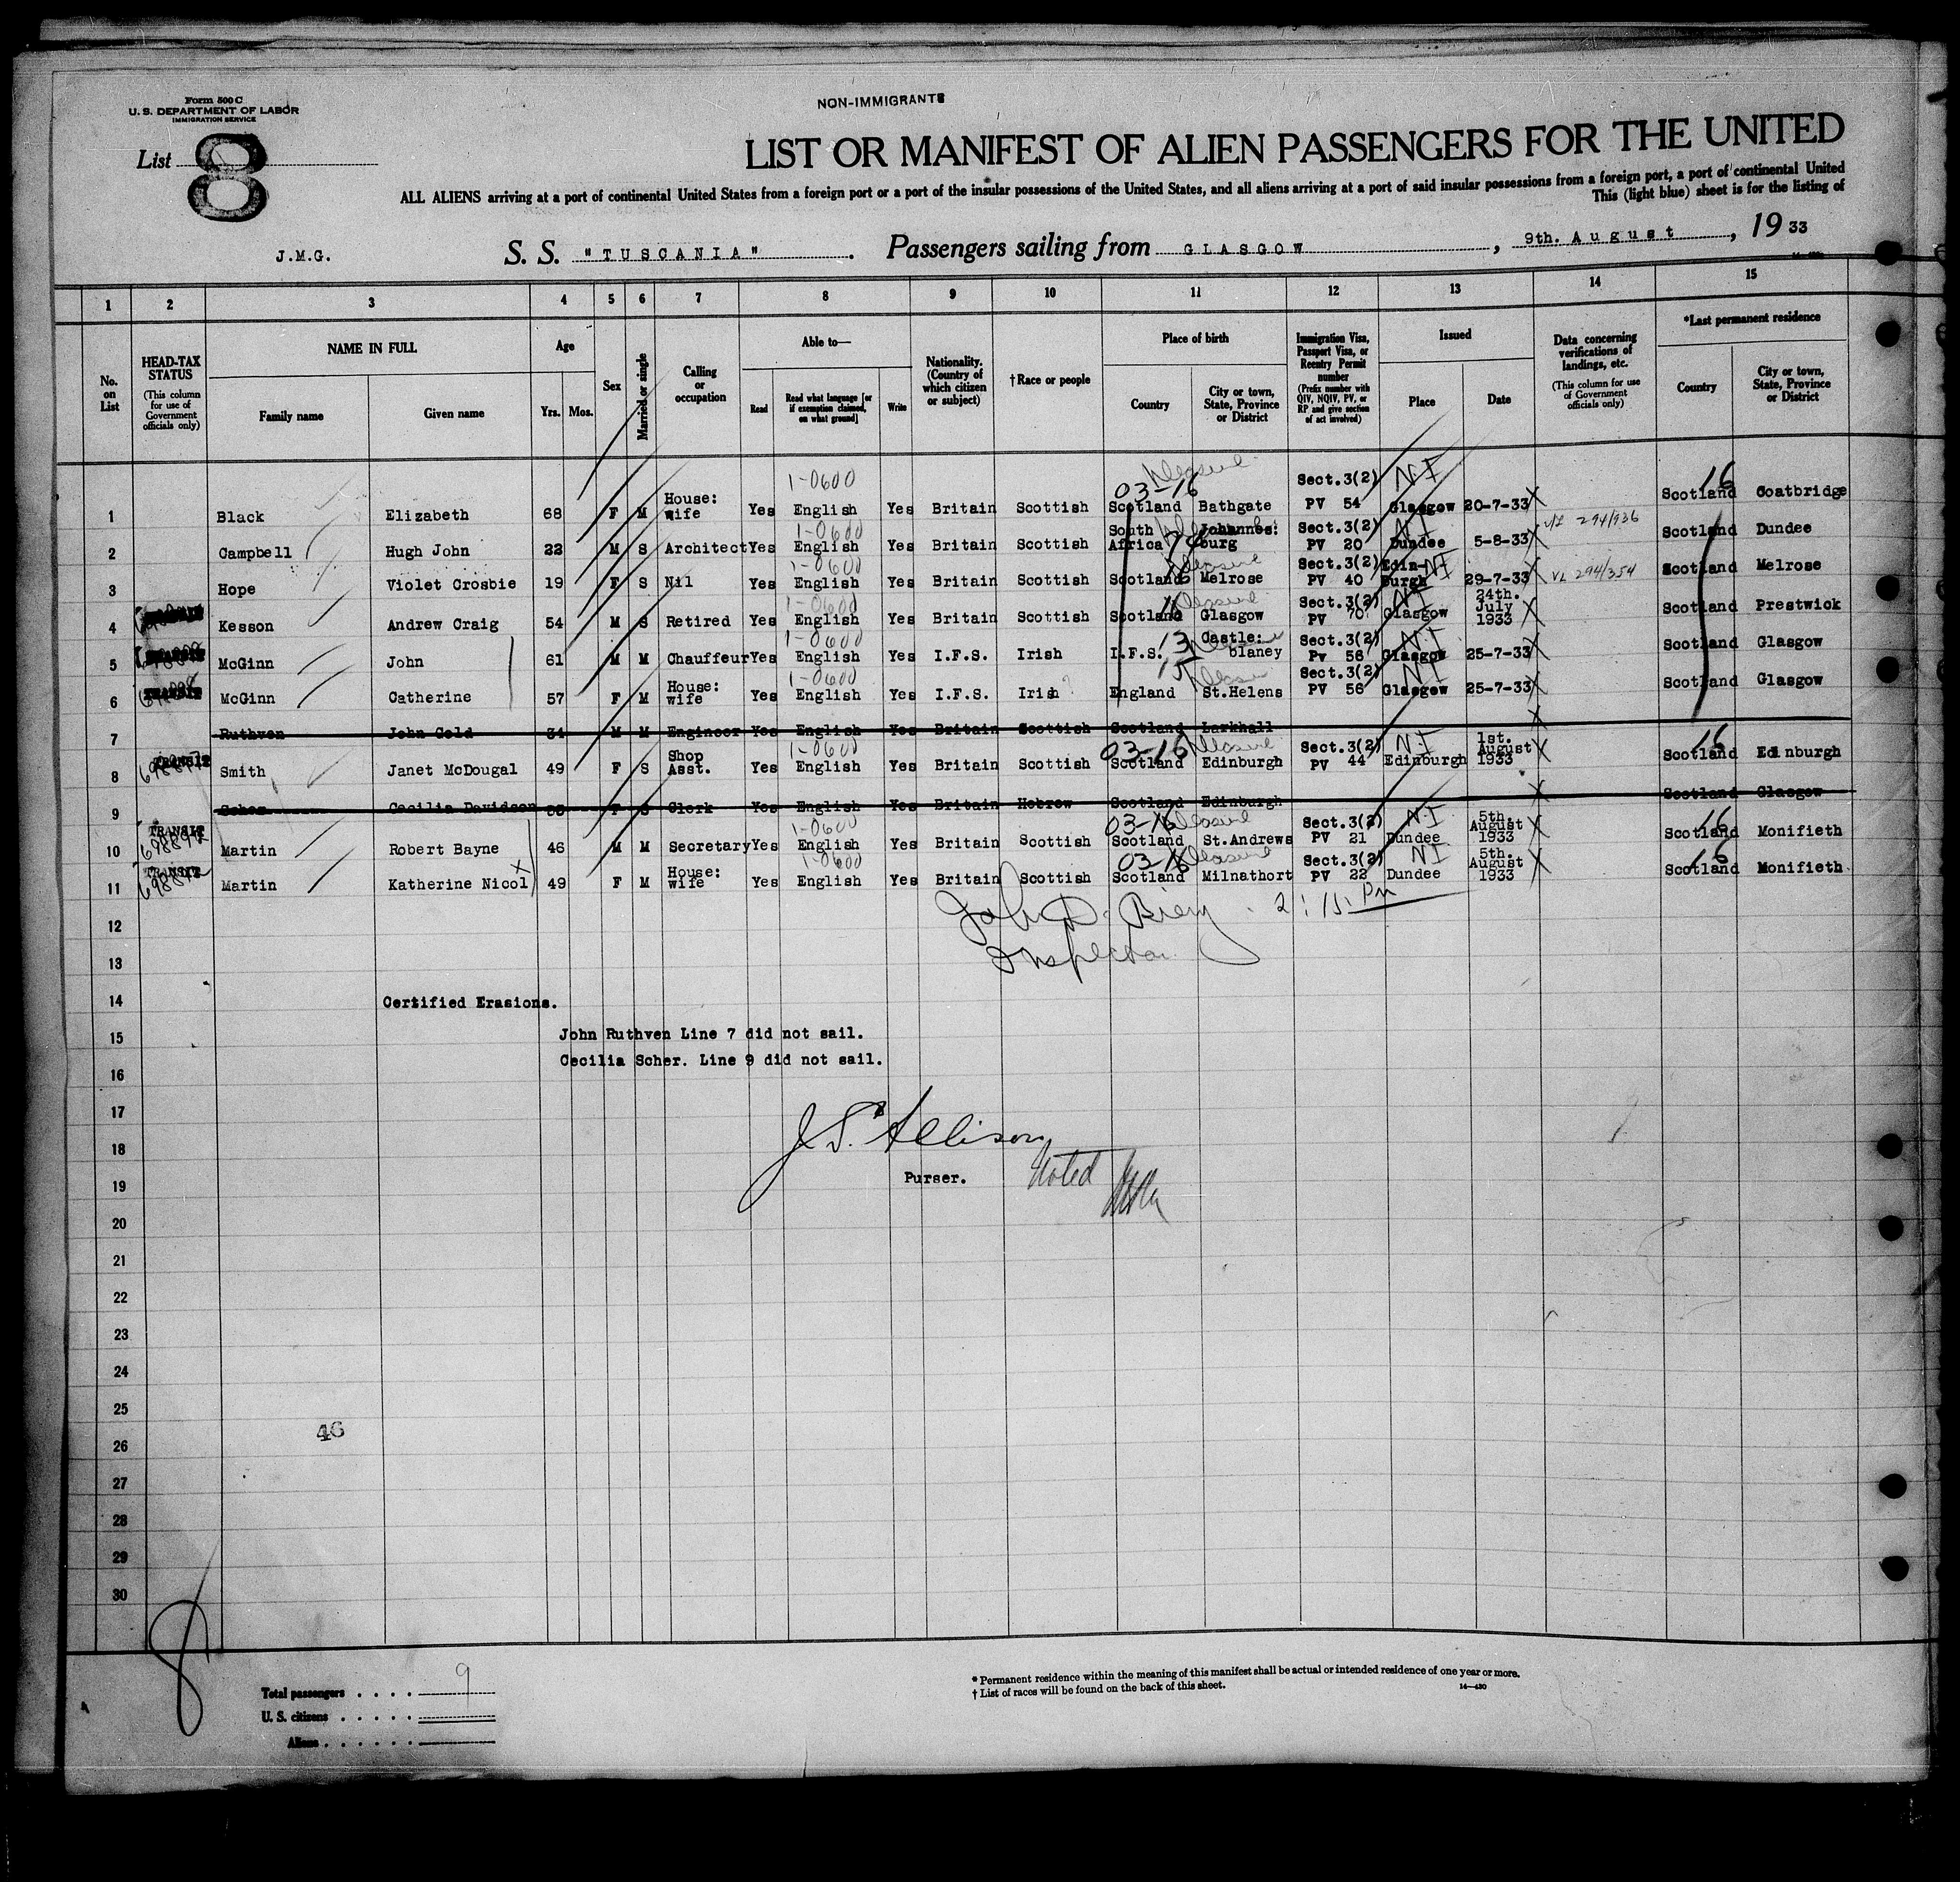 Form 500 C
U. S. DEPARTMENT OF LABOR
IMMIGRATION SERVICE
NON-IMMIGRANTS
List 8
LIST OR MANIFEST OF ALIEN PASSENGERS FOR THE UNITED
ALL ALIENS arriving at a port of continental United States from a foreign port or a port of the insular possessions of the United States, and all aliens arriving at a port of said insular possessions from a foreign port, a port of continental United
This (light blue) sheet is for the listing of
J.M.G. S. S. "TUSCANIA". Passengers sailing from GLASGOW, 9th. August, 1933
1 2 3 4 5 6 7 8 9 10 11 12 13 14 15
No. on List
HEAD-TAX STATUS (This column for use of Government officials only)
NAME IN FULL Family name Given name
Age Yrs. Mos.
Sex
Married or single
Calling or occupation
Able to— Read Read what language [or if exemption claimed, on what ground] Write
Nationality. (Country of which citizen or subject)
†Race or people
Place of birth Country City or town, State, Province or District
Immigration Visa, Passport Visa, or Reentry Permit number (Prefix number with QIV, NQIV, PV, or RP and give section of act involved)
Issued Place Date
Data concerning verifications of landings, etc. (This column for use of Government officials only)
*Last permanent residence Country City or town, State, Province or District
1 Black Elizabeth 68 F M House: wife Yes 1-0600 English Yes Britain Scottish 03-16 Scotland Bathgate Pleasure Sect.3(2) PV 54 NI Glasgow 20-7-33 X 16 Scotland Coatbridge
2 Campbell Hugh John 22 M S Architect Yes 1-0600 English Yes Britain Scottish South Africa Johannes: burg Sect.3(2) PV 20 NI Dundee 5-8-33 X 294/936 Scotland Dundee
3 Hope Violet Crosbie 19 F S Nil Yes 1-0600 English Yes Britain Scottish Scotland Melrose Pleasure Sect.3(2) PV 40 NI Edin- burgh 29-7-33 X VL 294/354 Scotland Melrose
4 Kesson Andrew Craig 54 M S Retired Yes 1-0600 English Yes Britain Scottish 16 Scotland Glasgow Pleasure Sect.3(2) PV 70 NI Glasgow 24th. July 1933 X Scotland Prestwick
5 McGinn John 61 M M Chauffeur Yes 1-0600 English Yes I.F.S. Irish I.F.S. 13 Castle: blaney Sect.3(2) Pv 56 NI Glasgow 25-7-33 X Scotland Glasgow
6 McGinn Catherine 57 F M House: wife Yes 1-0600 English Yes I.F.S. Irish England 15 St.Helens Sect.3(2) PV 56 NI Glasgow 25-7-33 X Scotland Glasgow
7 Ruthven John Gold 34 M M Engineer Yes English Yes Britain Scottish Scotland Larkhall X
8 TRANSIT Smith Janet McDougal 49 F S Shop Asst. Yes 1-0600 English Yes Britain Scottish 03-16 Scotland Edinburgh Pleasure Sect.3(2) PV 44 NI Edinburgh 1st. August 1933 X 16 Scotland Edinburgh
9 Scher Cecilia Davidson F S Clerk Yes English Yes Britain Hebrew Scotland Edinburgh X Scotland Glasgow
10 TRANSIT 698892 Martin Robert Bayne 46 M M Secretary Yes 1-0600 English Yes Britain Scottish 03-16 Scotland St.Andrews Pleasure Sect.3(2) PV 21 NI Dundee 5th. August 1933 X 16 Scotland Monifieth
11 TRANSIT 698892 Martin Katherine Nicol X 49 F M House: wife Yes 1-0600 English Yes Britain Scottish 03-16 Scotland Milnathort Pleasure Sect.3(2) PV 22 NI Dundee 5th. August 1933 X 16 Scotland Monifieth
12 John D. 2:15 Pm
13 Inspector
14 Certified Erasions.
15 John Ruthven Line 7 did not sail.
16 Cecilia Scher. Line 9 did not sail.
17
18 J S. Allison
19 Purser. Noted
20
21
22
23
24
25
26 46
27
28
29
30
8
Total passengers . . . . 9
U. S. citizens . . . . .
Aliens . . . . . .
* Permanent residence within the meaning of this manifest shall be actual or intended residence of one year or more.
† List of races will be found on the back of this sheet.
14—430